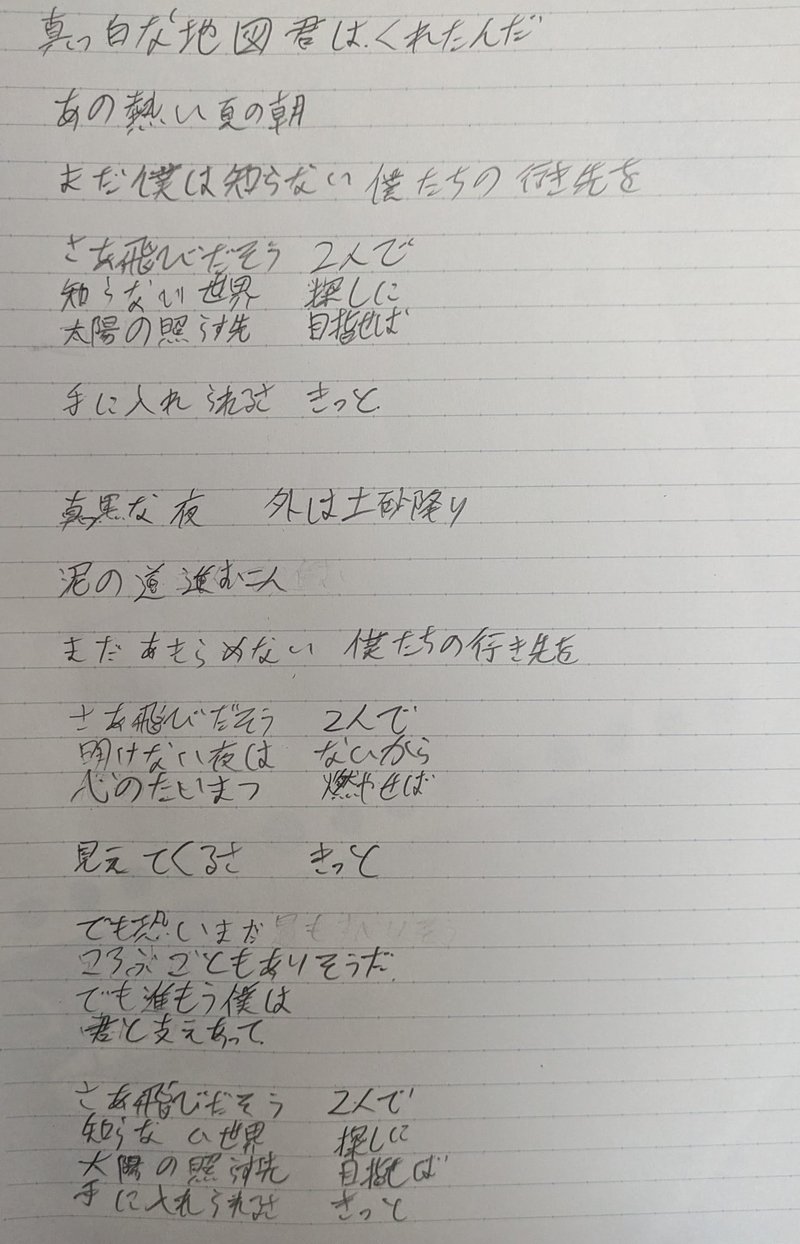 真っ白な地図君は、くれたんだ
あの熱い夏の朝
まだ僕は知らない 僕たちの行き先を
さあ飛びだそう 2人で
知らない世界 探しに
太陽の照らす先 目指せば
手に入れられるさ きっと
真っ黒な夜 外は土砂降り
泥の道進む二人
まだあきらめない 僕たちの行き先を
さあ飛びだそう 2人で
明けない夜は ないから
心のたいまつ 燃やせば
見えてくるさ きっと
でも恐いまだ
ころぶこともありそうだ
でも進もう僕は
君と支えあって
さあ飛びだそう 2人で
知らない世界 探しに
太陽の照らす先 目指せば
手に入れられるさ きっと